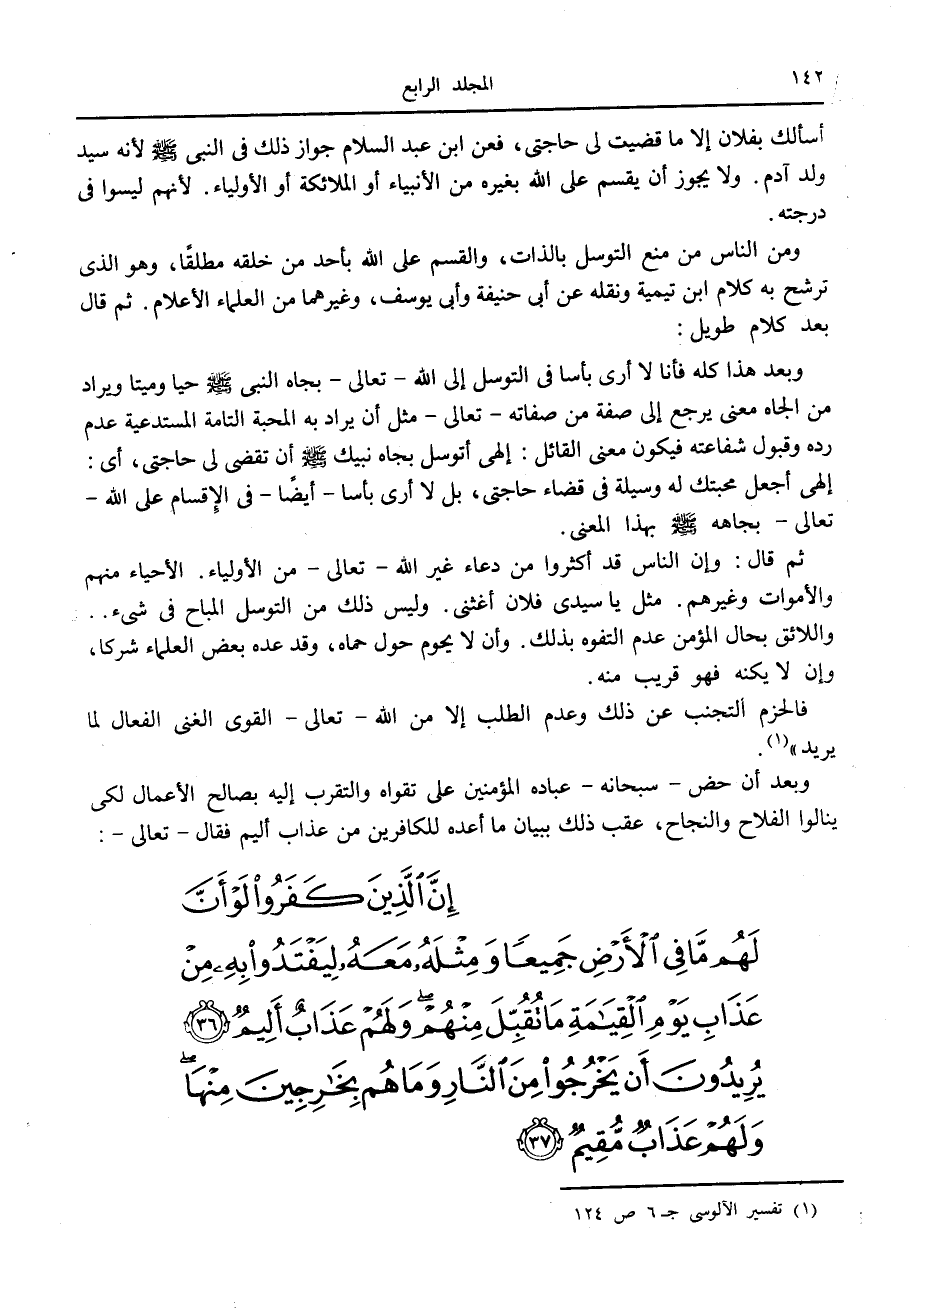 ١٤٢
المجلد الرابع
أسألك بفلان إلا ما قضيت لى حاجتى، فعن ابن عبد السلام جواز ذلك فى النبى ﷺ لأنه سيد
ولد آدم. ولا يجوز أن يقسم على الله بغيره من الأنبياء أو الملائكة أو الأولياء. لأنهم ليسوا فى
درجته.
ومن الناس من منع التوسل بالذات، والقسم على الله بأحد من خلقه مطلقًا، وهو الذى
ترشح به كلام ابن تيمية ونقله عن أبى حنيفة وأبى يوسف، وغيرهما من العلماء الأعلام. ثم قال
بعد كلام طويل :
وبعد هذا كله فأنا لا أرى بأسا فى التوسل إلى الله - تعالى - بجاه النبى ﷺ حيا وميتا ويراد
من الجاه معنى يرجع إلى صفة من صفاته - تعالى - مثل أن يراد به المحبة التامة المستدعية عدم
رده وقبول شفاعته فيكون معنى القائل : إلهى أتوسل بجاه نبيك ﷺ أن تقضى لى حاجتى، أى :
إلهى أجعل محبتك له وسيلة فى قضاء حاجتى، بل لا أرى بأسا - أيضًا - فى الإقسام على الله -
تعالى - بجاهه ﷺ بهذا المعنى.
ثم قال : وإن الناس قد أكثروا من دعاء غير الله - تعالى - من الأولياء. الأحياء منهم
والأموات وغيرهم. مثل يا سيدى فلان أغثنى. وليس ذلك من التوسل المباح فى شىء..
واللائق بحال المؤمن عدم التفوه بذلك. وأن لا يحوم حول حماه، وقد عده بعض العلماء شركا،
وإن لا يكنه فهو قريب منه.
فالحزم التجنب عن ذلك وعدم الطلب إلا من الله - تعالى - القوى الغنى الفعال لما
يريد»(١).
وبعد أن حض - سبحانه - عباده المؤمنين على تقواه والتقرب إليه بصالح الأعمال لكى
ينالوا الفلاح والنجاح، عقب ذلك ببيان ما أعده للكافرين من عذاب أليم فقال - تعالى - :
إِنَّ ٱلَّذِينَ كَفَرُوا۟ لَوْ أَنَّ
لَهُم مَّا فِى ٱلْأَرْضِ جَمِيعًا وَمِثْلَهُۥ مَعَهُۥ لِيَفْتَدُوا۟ بِهِۦ مِنْ
عَذَابِ يَوْمِ ٱلْقِيَٰمَةِ مَا تُقُبِّلَ مِنْهُمْ ۖ وَلَهُمْ عَذَابٌ أَلِيمٌ ٣٦
يُرِيدُونَ أَن يَخْرُجُوا۟ مِنَ ٱلنَّارِ وَمَا هُم بِخَٰرِجِينَ مِنْهَا ۖ
وَلَهُمْ عَذَابٌ مُّقِيمٌ ٣٧
(١) تفسير الآلوسى جـ ٦ ص ١٢٤